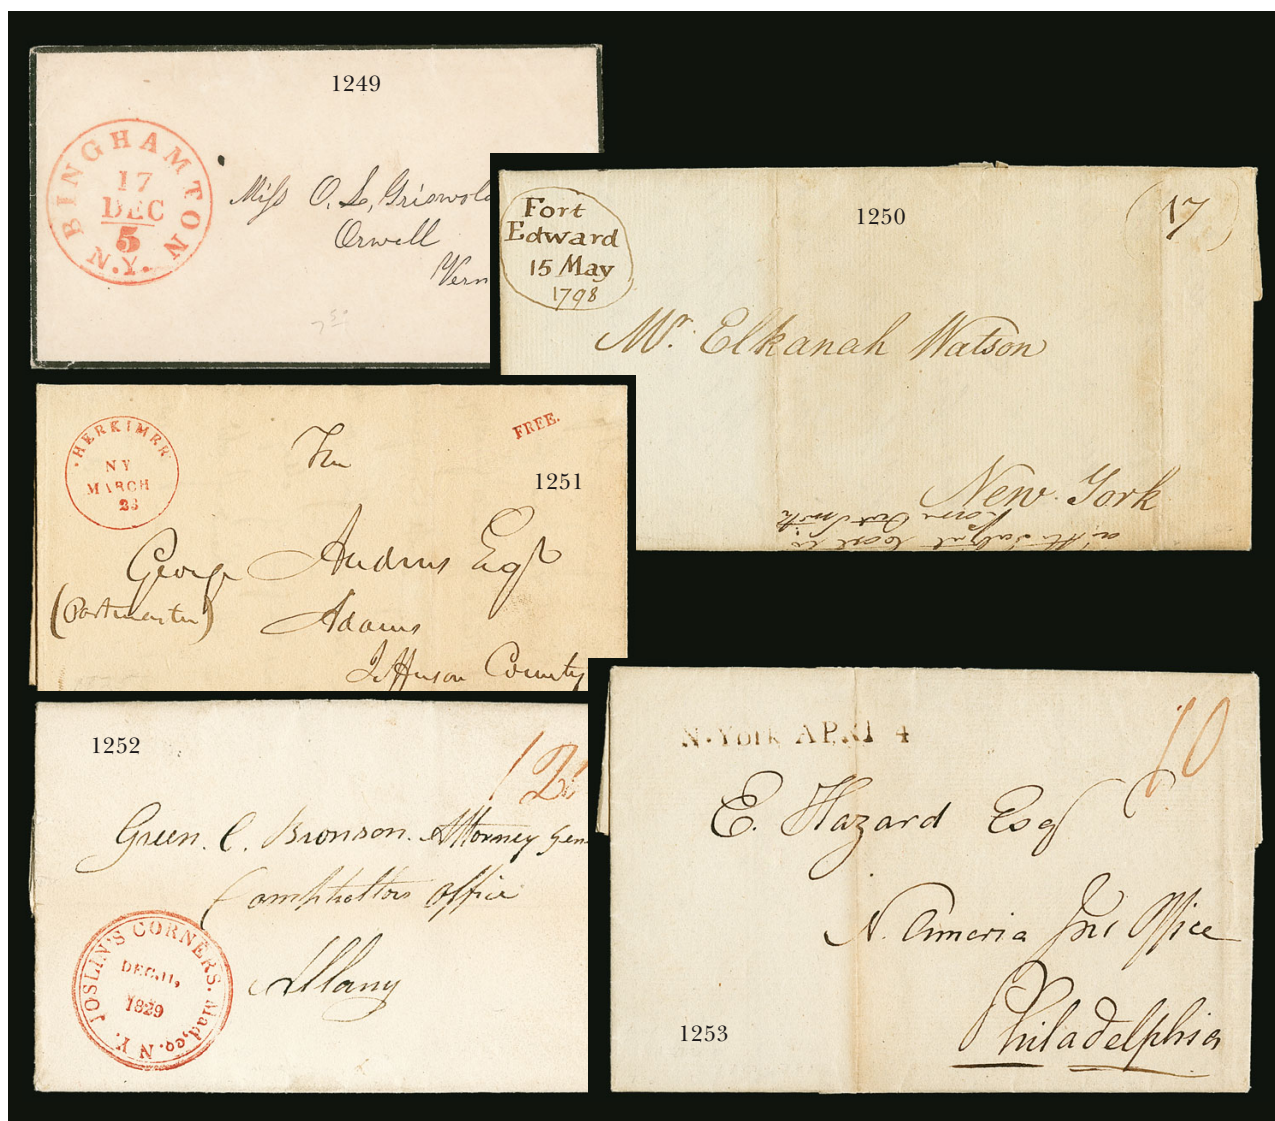 1249
BINGHAMTON
17
DEC
5
N.Y.
Miss O. L. Griswold
Orwell
Verm
1250
Fort
Edward
15 May
1798
17
Mr. Elkanah Watson
New York
1251
HERKIMER
NY
MARCH
FREE.
The
George Andrus Esqr
(Postmaster)
Adams
Jefferson County
1252
12½
Green. C. Bronson. Attorney Gen
Comptrollers Office
Albany
JOSLIN'S CORNERS. Mad. co. N.Y.
DEC. 11,
1829
1253
N-York APRI 4
10
E. Hazard Esqr
N. America Ins Office
Philadelphia